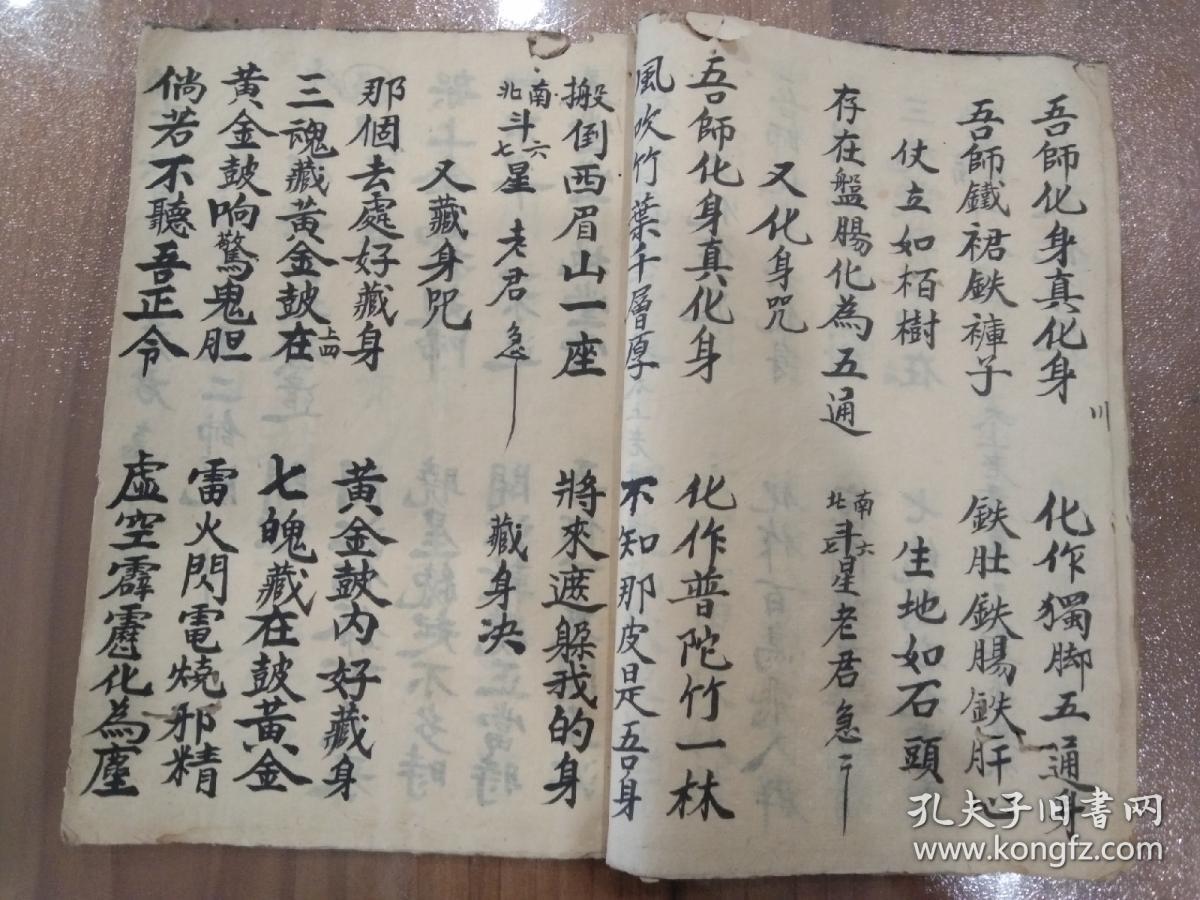 吾師化身真化身 化作獨脚五通身
吾師鐵裙鉄褲子 鉄肚鉄腸鉄肝心
仗立如栢樹 生地如石頭
存在盤腸化為五通 南六北七斗星老君急二
又化身咒
吾師化身真化身 化作普陀竹一林
風吹竹葉千層厚 不知那皮是吾身
搬倒西眉山一座 將來遮躲我的身
南六北七斗星 老君急
又藏身咒 藏身决
那個去處好藏身 黄金皷内好藏身
三魂藏黄金皷在上四 七魄藏在皷黄金
黄金皷响驚鬼胆 雷火閃電燒邪精
倘若不聽吾正令 虚空霹靂化為塵
川
孔夫子旧書网
www.kongfz.com